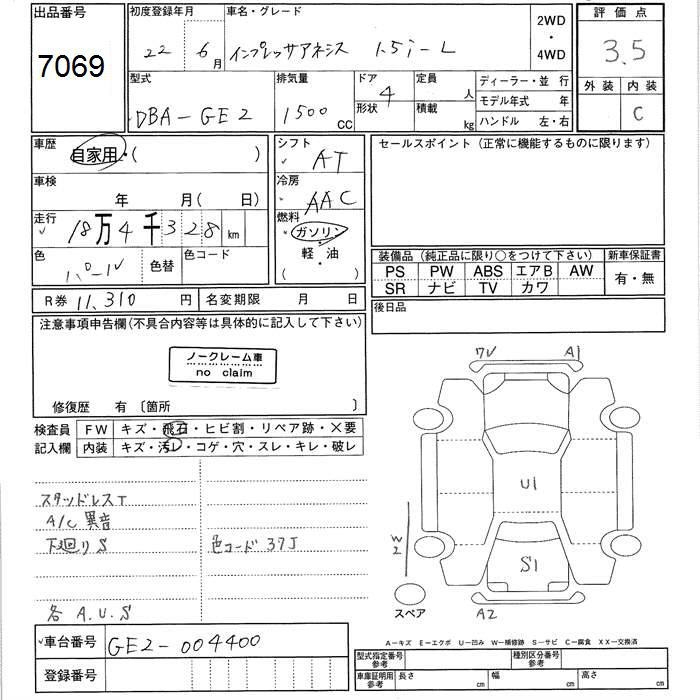 出品番号
7069
初度登録年月
22 6月
車名・グレード
インプレッサアネシス 1.5i-L
2WD
・
4WD
評価点
3.5
外装 内装
C
型式
DBA-GE2
排気量
1500 CC
ドア 4
形状
定員 人
積載 kg
ディーラー・並行
モデル年式 年
ハンドル 左・右
車歴
自家用・( )
車検
年 月( 日)
走行
18万4千328 km
色
色替
色コード
シフト
AT
冷房
AAC
燃料
ガソリン
・
軽油
・
セールスポイント (正常に機能するものに限ります)
装備品 (純正品に限り○をつけて下さい)
PS PW ABS エアB AW
SR ナビ TV カワ
新車保証書
有・無
後日品
R券 11,310 円
名変期限 月 日
注意事項申告欄(不具合内容等は具体的に記入して下さい)
ノークレーム車
no claim
修復歴 有 〔箇所 〕
検査員 FW キズ・飛石・ヒビ割・リペア跡・×要
記入欄 内装 キズ・汚レ・コゲ・穴・スレ・キレ・破レ
スタッドレスT
A/C 異音
下廻り S
色コード 37J
各 A.U.S
ワレ A1
U1
W2
S1
スペア
A2
車台番号 GE2-004400
登録番号
A-キズ E-エクボ U-凹み W-補修跡 S-サビ C-腐食 XX-交換済
型式指定番号
参考
種別区分番号
参考
車庫証明用
参考
長さ cm
幅 cm
高さ cm